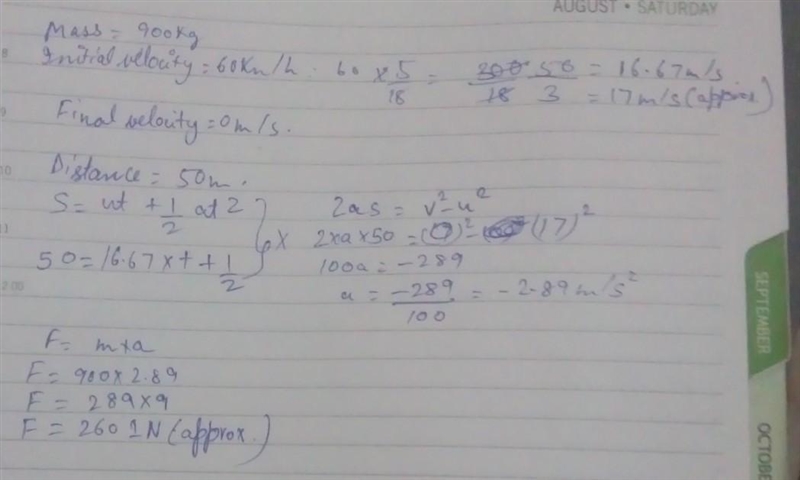 AUGUST • SATURDAY
Mass = 900kg
Initial velocity = 60Km/h. 60 × 5/18 = 300/18 50/3 = 16.67m/s
= 17m/s (approx)
Final velocity = 0m/s.
Distance = 50m.
S = ut + 1/2 at2
50 = 16.67 × t + 1/2
X
2as = v²-u²
2×a×50 = (0)² - (17)²
100a = -289
a = -289/100 = -2.89m/s²
F = m×a
F = 900 × 2.89
F = 289 × 9
F = 2601N (approx.)
8
9
10
11
12:00
SEPTEMBER
OCTOBER